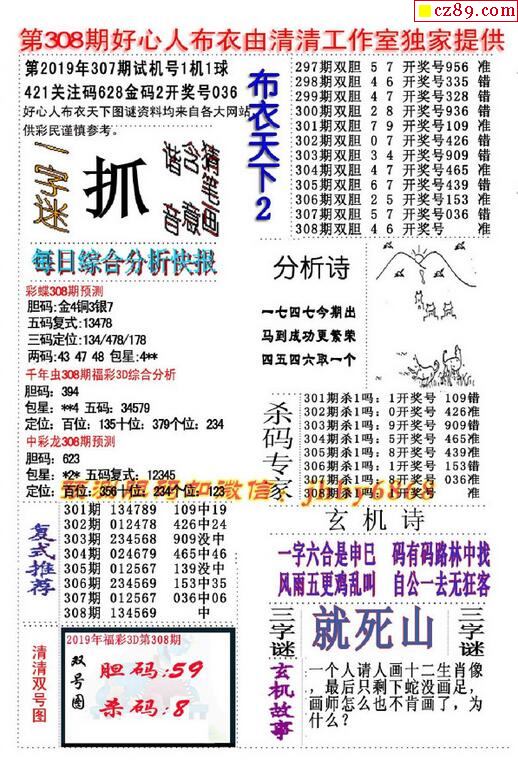 cz89.com
第308期好心人布衣由清清工作室独家提供
第2019年307期试机号1机1球
421关注码628金码2开奖号036
好心人布衣天下图谜资料均来自各大网站
供彩民谨慎参考。
一字谜
抓
猜笔画
含意
谐音
每日综合分析快报
彩蝶308期预测
胆码:金4铜3银7
五码复式:13478
三码定位:134/478/178
两码:43 47 48 包星:4**
千年虫308期福彩3D综合分析
胆码:394
包星:**4 五码:34579
定位:百位:135十位:379个位:234
中彩龙308期预测
胆码:623
包星:*2* 五码复式:12345
定位:百位:356十位:234个位:123
布衣天下2
297期双胆 5 7 开奖号956 准
298期双胆 4 6 开奖号335 错
299期双胆 4 7 开奖号328 错
300期双胆 2 8 开奖号936 错
301期双胆 7 9 开奖号109 准
302期双胆 0 7 开奖号426 错
303期双胆 3 4 开奖号909 错
304期双胆 4 7 开奖号465 准
305期双胆 6 7 开奖号439 错
306期双胆 2 5 开奖号153 准
307期双胆 5 7 开奖号036 错
308期双胆 4 6 开奖号 准
分析诗
一七四七今期出
马到成功更繁荣
四五四六取一个
杀码专家
301期杀1吗:1开奖号 109错
302期杀1吗:0开奖号 426准
303期杀1吗:9开奖号 909错
304期杀1吗:5开奖号 465错
305期杀1吗:4开奖号 439错
306期杀1吗:1开奖号 153错
307期杀1吗:7开奖号 036准
308期杀1吗:1开奖号 准
复式推荐
301期 134789 109中19
302期 012478 426中24
303期 234568 909没中
304期 024679 465中46
305期 012567 139没中
306期 234569 153中35
307期 012567 036中06
308期 134569 中
玄机诗
一字六合是申巳 码有码路林中找
风雨五更鸡乱叫 自公一去无狂客
三字谜
就死山
三字谜
清清双号图
2019年福彩3D第308期
双号图
胆码:59
杀码:8
玄机故事
一个人请人画十二生肖像
,最后只剩下蛇没画足,
画师怎么也不肯画了,为
什么?